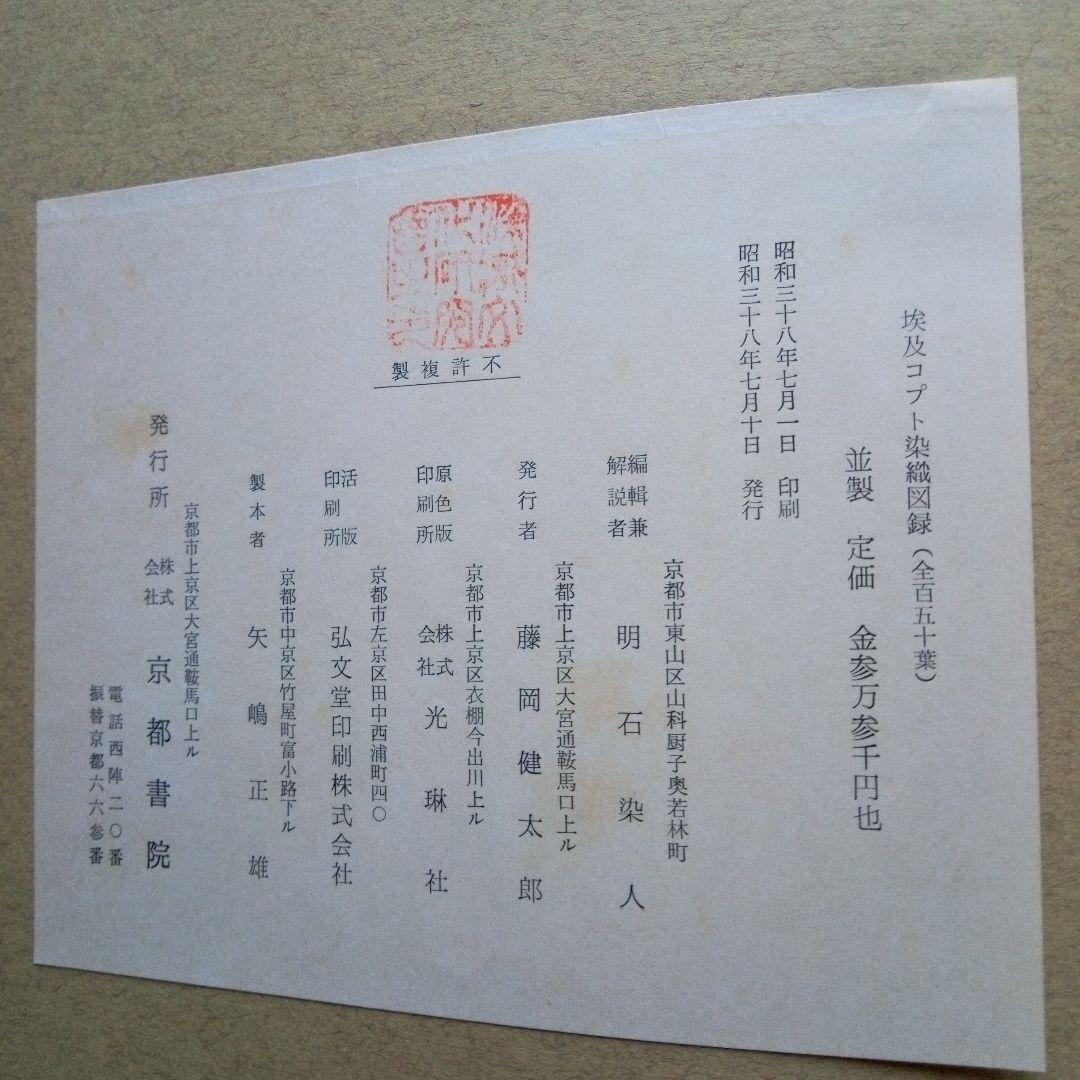 埃及コプト染織図録(全百五十葉)
並製 定価 金参万参千円也
昭和三十八年七月一日 印刷
昭和三十八年七月十日 発行
京都市東山区山科厨子奥若林町
編輯兼
解説者 明石染人
京都市上京区大宮通鞍馬口上ル
発行者 藤岡健太郎
京都市上京区衣棚今出川上ル
原色版
印刷所 株式会社 光琳社
京都市左京区田中西浦町四〇
活版
印刷所 弘文堂印刷株式会社
京都市中京区竹屋町富小路下ル
製本者 矢嶋正雄
不許複製
京都市上京区大宮通鞍馬口上ル
発行所 株式会社 京都書院
電話西陣二〇番
振替京都六六参番